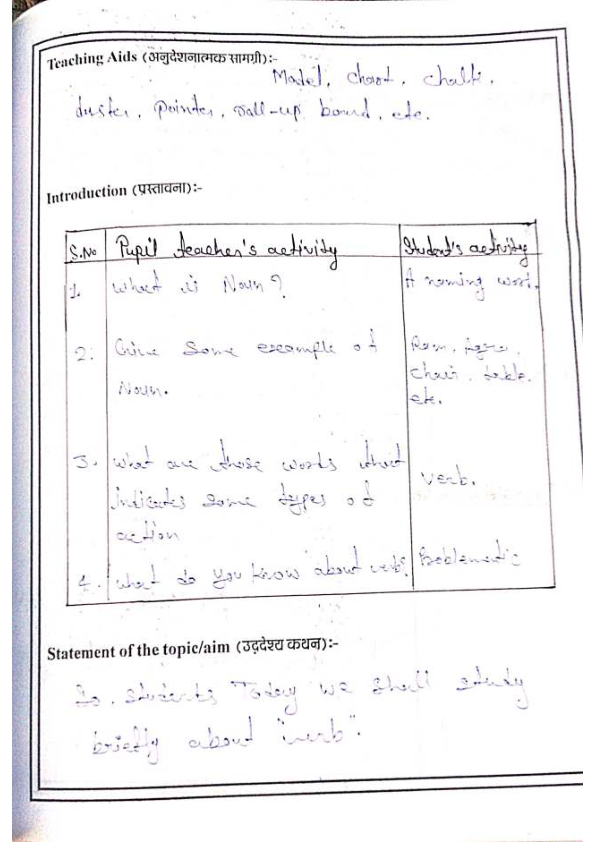 Teaching Aids (अनुदेशनात्मक सामग्री):-
Model, chart, chalk,
duster, pointer, roll-up board, etc.
Introduction (प्रस्तावना):-
S.No Pupil teacher's activity Student's activity
1. What is Noun? A naming word.
2. Give some example of Ram, Agra,
Noun. chair, table.
etc.
3. What are those words that verb.
indicates some types of
action
4. What do you know about verb? Problematic
Statement of the topic/aim (उद्देश्य कथन):-
So, students Today we shall study
briefly about "verb".